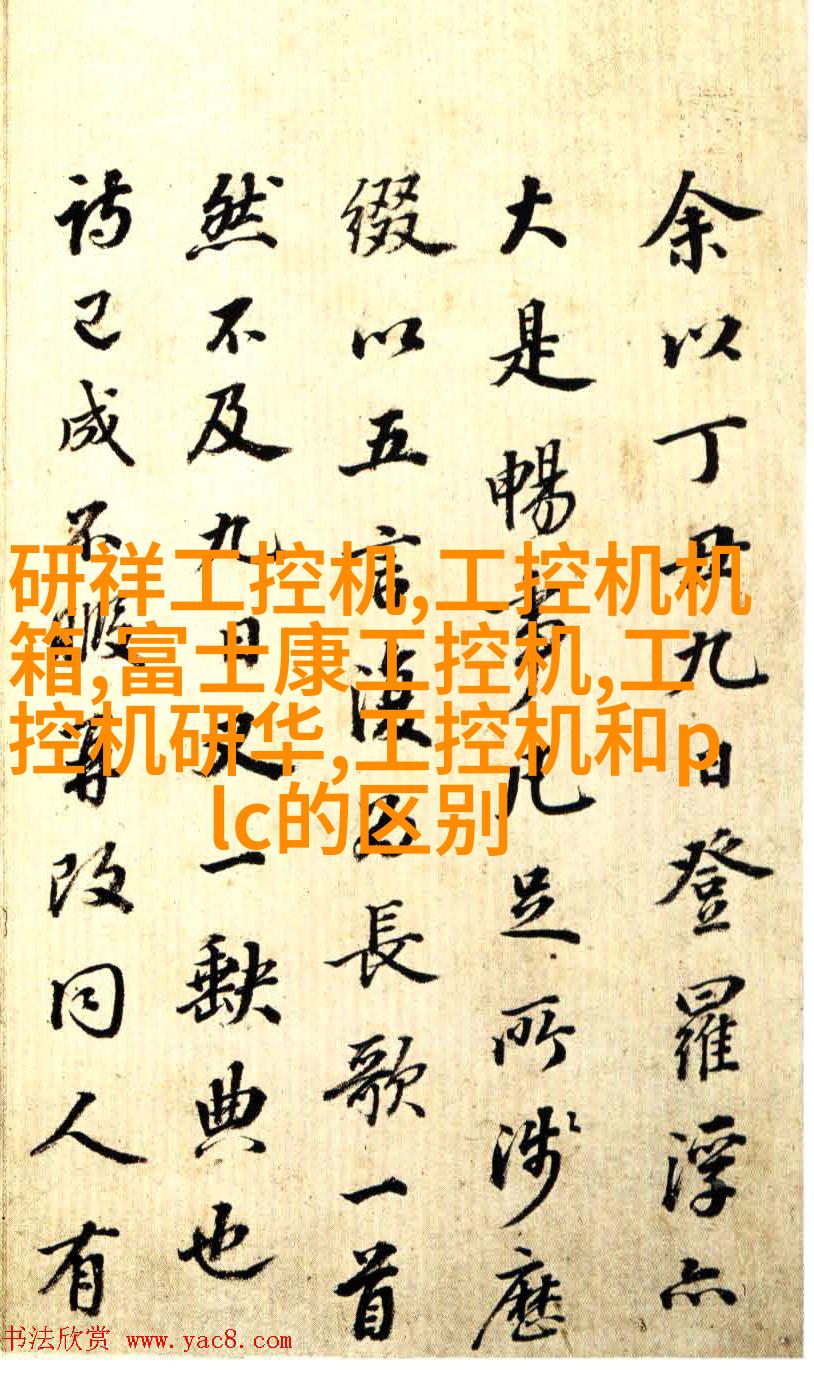 余以丁丑九日登羅浮亦
大是暢事凡足所涉歷
綴以五言長歌一首
然不及九日又一缺典也
詩已成不暇再改同人有
研祥工控机,工控机机
箱,富士康工控机,工
控机研华,工控机和p
lc的区别
书法欣赏 www.yac8.com